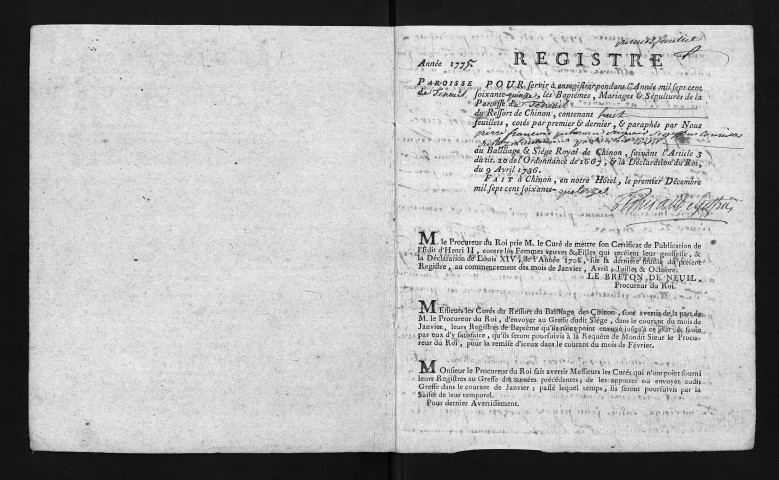 premier feuillet
REGISTRE
Année 1775.
PAROISSE de Seneuil.
POUR servir à enregistrer pendant l'Année mil sept cent
soixante-quinze, les Baptêmes, Mariages & Sépultures de la
Paroisse de Seneuil
du Ressort de Chinon, contenant huit
feuillets, cotés par premier & dernier, & paraphés par Nous
pierre françois
au Bailliage & Siége Royal de Chinon, suivant l'Article 3
du tit. 20 de l'Ordonnance de 1667, & la Déclaration du Roi,
du 9 Avril 1736.
FAIT à Chinon, en notre Hôtel, le premier Décembre
mil sept cent soixante-quatorze.
M. le Procureur du Roi prie M. le Curé de mettre son Certificat de Publication de
l'Édit d'Henri II, contre les Femmes veuves & Filles qui recélent leur grossesse, &
la Déclaration de Louis XIV, de l'Année 1708, sur la derniere feuille du présent
Registre, au commencement des mois de Janvier, Avril, Juillet & Octobre.
LE BRETON DE NEUIL,
Procureur du Roi.
MEssieurs les Curés du Ressort du Bailliage de Chinon, sont avertis de la part de
M. le Procureur du Roi, d'envoyer au Greffe dudit Siége, dans le courant du mois de
Janvier, leurs Registres de Baptême qu'ils n'ont point envoyé jusqu'à ce jour; & faute
par eux d'y satisfaire, qu'ils seront poursuivis à la Requête de Mondit Sieur le Procu-
reur du Roi, pour la remise d'iceux dans le courant du mois de Février.
MOnsieur le Procureur du Roi fait avertir Messieurs les Curés qui n'ont point fourni
leurs Registres au Greffe des années précédentes; de les apporter ou envoyer audit
Greffe dans le courant de Janvier; passé lequel temps, ils seront poursuivis par la
Saisie de leur temporel.
Pour dernier Avertissement.